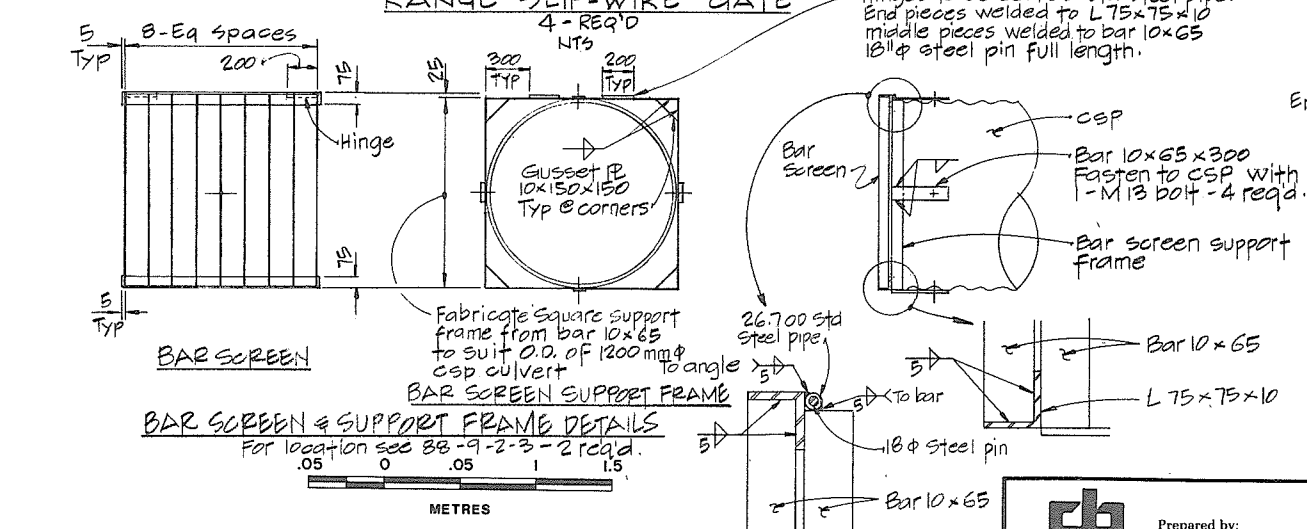 RANGE SLIP-WIRE GATE
4 - REQ'D
NTS
Hinges to be
steel pipe.
End pieces welded to L 75×75×10
middle pieces welded to bar 10×65
18"φ steel pin full length.
5
Typ
8-Eq spaces
200
75
25
300
Typ
200
Typ
Hinge
Gusset PL
10×150×150
Typ @ corners
75
5
Typ
BAR SCREEN
Fabricate Square support
frame from bar 10×65
to suit O.D. of 1200 mmφ
csp culvert
BAR SCREEN SUPPORT FRAME
BAR SCREEN & SUPPORT FRAME DETAILS
For location see 88-9-2-3 - 2 req'd.
.05 0 .05 1 1.5
METRES
Bar
Screen
CSP
Bar 10×65×300
Fasten to CSP with
1-M13 bolt - 4 req'd.
Bar screen support
frame
26.700 Std
Steel pipe
To angle
5
5
To bar
5
18φ Steel pin
Bar 10×65
5
Bar 10×65
L 75×75×10
Prepared by: